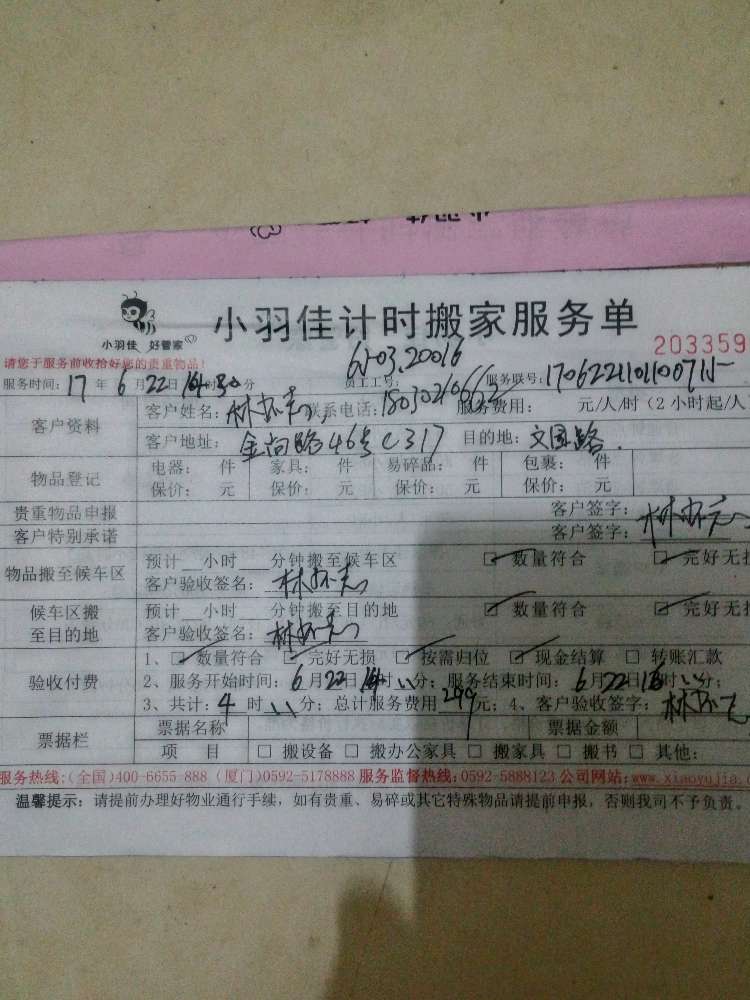 小羽佳 好管家
小羽佳计时搬家服务单
203359
请您于服务前收拾好您的贵重物品!
服务时间: 17 年 6 月 22 日 14时30分 员工工号: 6103.20016 服务联号:
客户资料
客户姓名: 联系电话: 服务费用: 元/人/时 (2小时起/人
客户地址: 金尚路46号C317 目的地: 文园路.
物品登记
电器: 件 家具: 件 易碎品: 件 包裹: 件
保价: 元 保价: 元 保价: 元 保价: 元
贵重物品申报 客户签字:
客户特别承诺 客户签字:
物品搬至候车区
预计__小时___分钟搬至候车区 ☑ 数量符合 ☑ 完好无损
客户验收签名:
候车区搬至目的地
预计__小时___分钟搬至目的地 ☑ 数量符合 ☑ 完好无损
客户验收签名:
验收付费
1、☑ 数量符合 ☑ 完好无损 ☑ 按需归位 ☑ 现金结算 □ 转账汇款
2、服务开始时间: 6月22日14时 分; 服务结束时间: 6月22日16时 分;
3、共计: 4 时 分; 总计服务费用 299 元; 4、客户验收签字:
票据栏
票据名称 票据金额
项 目 □ 搬设备 □ 搬办公家具 □ 搬家具 □ 搬书 □ 其他:
服务热线:(全国)400-6655 888 (厦门)0592-5178888 服务监督热线:0592-5888123 公司网站:www.xiaoyujia.c
温馨提示: 请提前办理好物业通行手续, 如有贵重、易碎或其它特殊物品请提前申报, 否则我司不予负责。